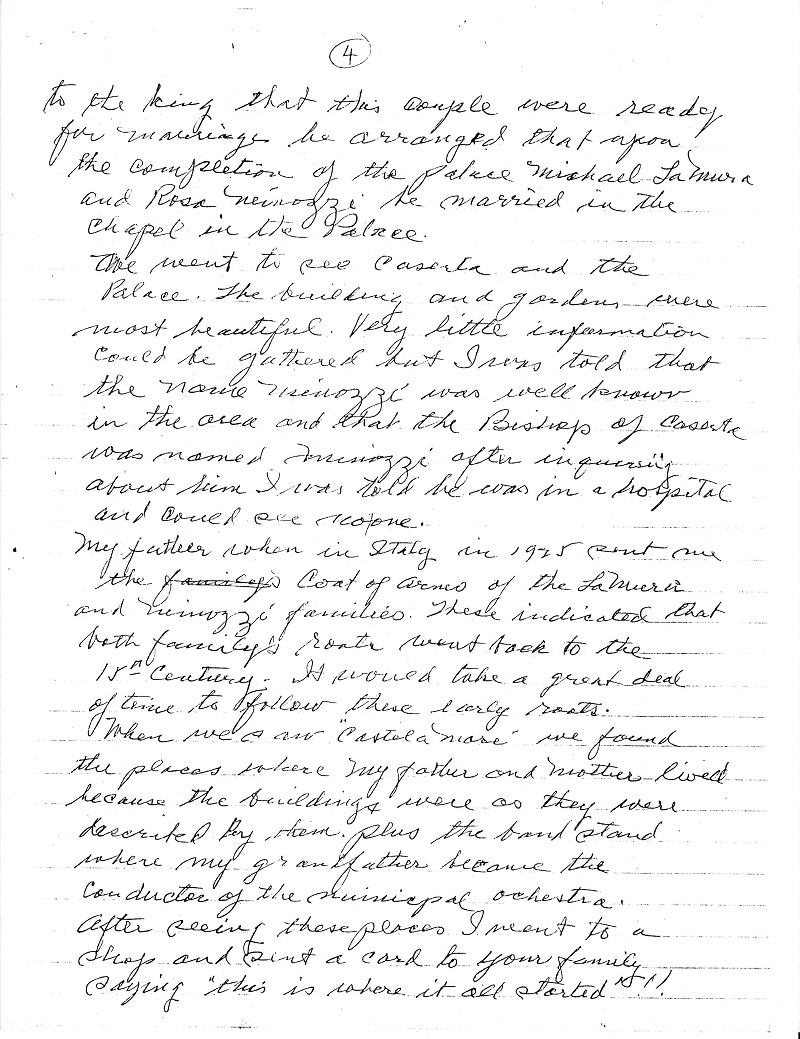 4
to the king that this couple were ready
for marriage he arranged that upon
the completion of the palace Michael LaMura
and Rosa Minozzi be married in the
Chapel in the Palace.
We went to see Caserta and the
Palace. The building and gardens were
most beautiful. Very little information
could be gathered but I was told that
the name Minozzi was well known
in the area and that the Bishop of Caserta
was named Minozzi after inquiring
about him I was told he was in a hospital
and could see no one.
My father when in Italy in 1925 sent me
the family's Coat of arms of the LaMura
and Minozzi families. These indicated that
both family's roots went back to the
15th Century. It would take a great deal
of time to follow these early roots.
When we saw "Castelamare" we found
the places where my father and mother lived
because the buildings were as they were
described by them. plus the band stand
where my grandfather became the
Conductor of the municpal ochestra.
After seeing these places I went to a
shop and sent a card to your family
saying "this is where it all started"!!!